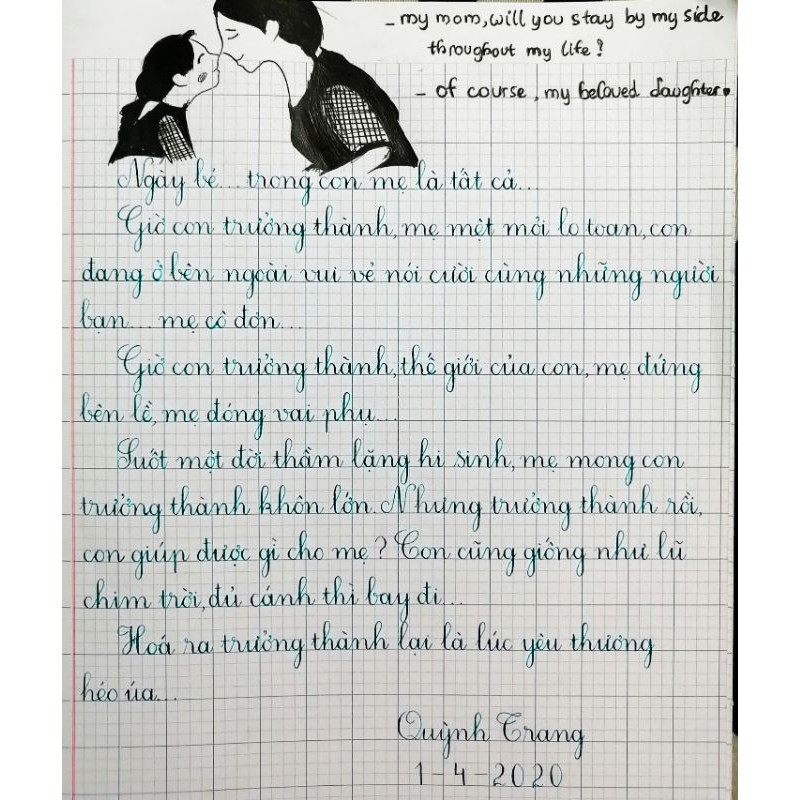 - my mom, will you stay by my side
throughout my life?
- of course, my beloved daughter.
Ngày bé... trong con mẹ là tất cả...
Giờ con trưởng thành, mẹ mệt mỏi lo toan, con
đang ở bên ngoài vui vẻ nói cười cùng những người
bạn... mẹ cô đơn...
Giờ con trưởng thành, thế giới của con, mẹ đứng
bên lề, mẹ đóng vai phụ...
Suốt một đời thầm lặng hi sinh, mẹ mong con
trưởng thành khôn lớn. Nhưng trưởng thành rồi,
con giúp được gì cho mẹ? Con cũng giống như lũ
chim trời, đủ cánh thì bay đi...
Hoá ra trưởng thành lại là lúc yêu thương
héo úa...
Quỳnh Trang
1-4-2020